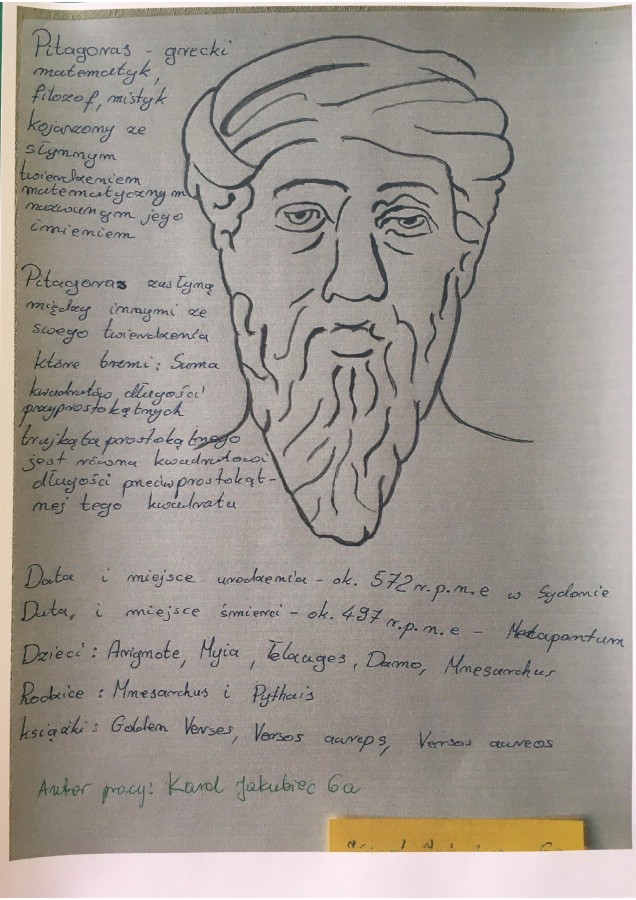 Pitagoras - grecki
matematyk,
filozof, mistyk
kojarzony ze
słynnym
twierdzeniem
matematycznym
nazwanym jego
imieniem
Pitagoras zasłyną
między innymi ze
swego twierdzenia
które brzmi: Suma
kwadratów długości
przyprostokątnych
trujkąta prostokątnego
jest równa kwadratowi
długości przeciwprostokąt-
nej tego kwadratu
Data i miejsce urodzenia - ok. 572 r.p.n.e w Sydonie
Data, i miejsce śmierci - ok. 497 r.p.n.e - Metapontum
Dzieci: Arignote, Myia, Telauges, Damo, Mnesarchus
Rodzice: Mnesarchus i Pythais
książki: Golden Verses, Versos aureps, Versos aureos
Autor pracy: Karol Jakubiec 6a